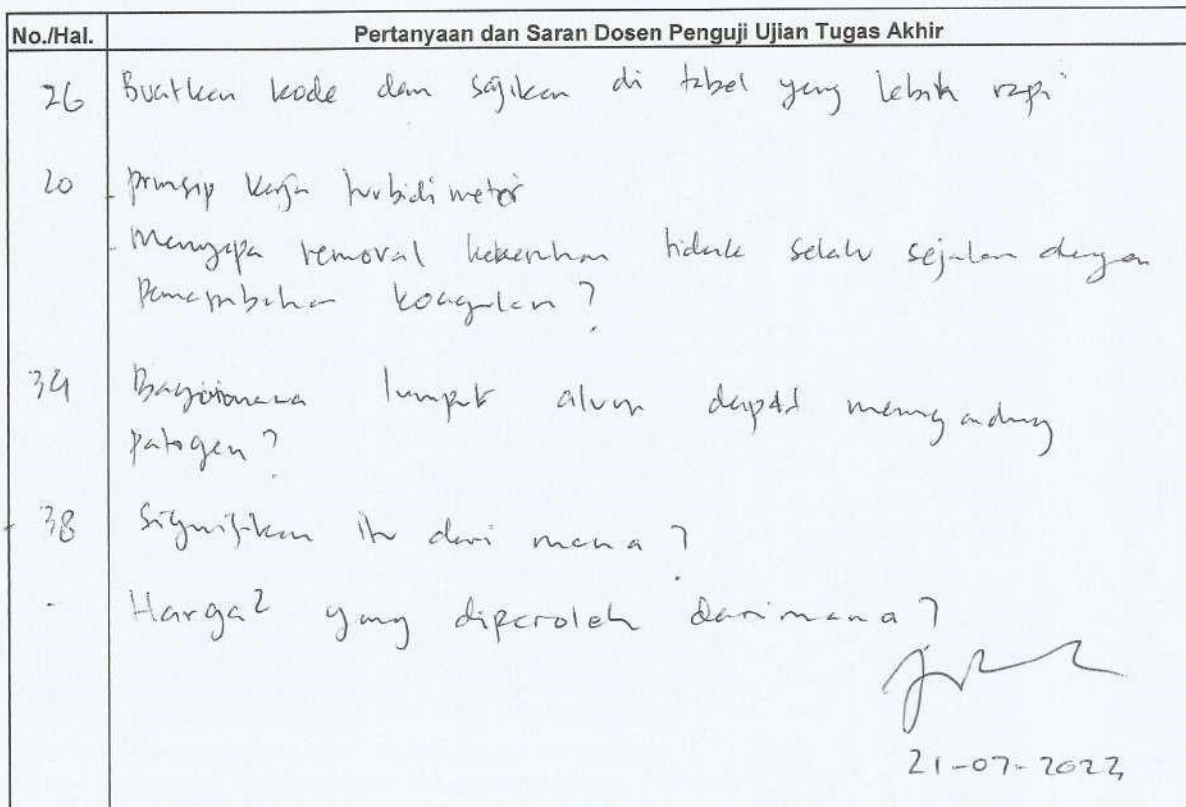 No./Hal. Pertanyaan dan Saran Dosen Penguji Ujian Tugas Akhir
26 Buatkan kode dan sajikan di tabel yang lebih rapi
20 - prinsip kerja turbidimeter
- Mengapa removal kekeruhan tidak selalu sejalan dengan
penambahan koagulan ?
34 Bagaimana lumpur alum dapat mengandung
patogen ?
38 Signifikan itu dari mana ?
- Harga2 yang diperoleh darimana ?
21-07-2022